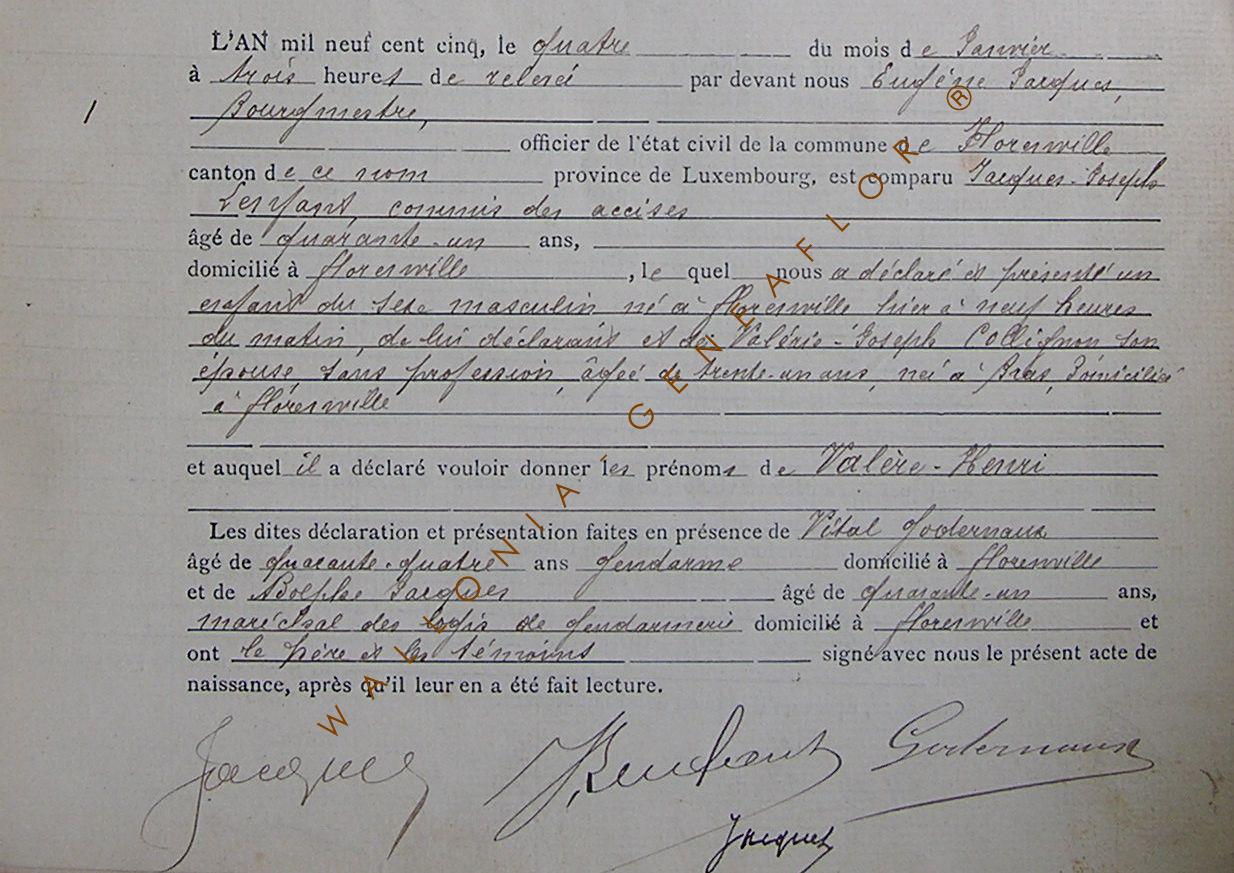 L'AN mil neuf cent cinq, le quatre du mois de Janvier
à trois heures de relevée par devant nous Eugène Jacques,
1
Bourgmestre,
officier de l'état civil de la commune de Florenville
canton de ce nom province de Luxembourg, est comparu Jacques-Joseph
Lenfant, commis des accises
âgé de quarante-un ans,
domicilié à Florenville, le quel nous a déclaré et présenté un
enfant du sexe masculin né à Florenville hier à neuf heures
du matin, de lui déclarant et de Valérie-Joseph Collignon son
épouse, sans profession, âgée de trente-un ans, née à Bras, domiciliée
à Florenville
et auquel il a déclaré vouloir donner les prénoms de Valère-Henri
Les dites déclaration et présentation faites en présence de Vital Godernaux
âgé de quarante-quatre ans gendarme domicilié à Florenville
et de Adolphe Jacques âgé de quarante-un ans,
maréchal des logis de gendarmerie domicilié à Florenville et
ont le père et les témoins signé avec nous le présent acte de
naissance, après qu'il leur en a été fait lecture.
Jacques Godernaux
Jacques
WALLONIA - GENEAFLOR ®